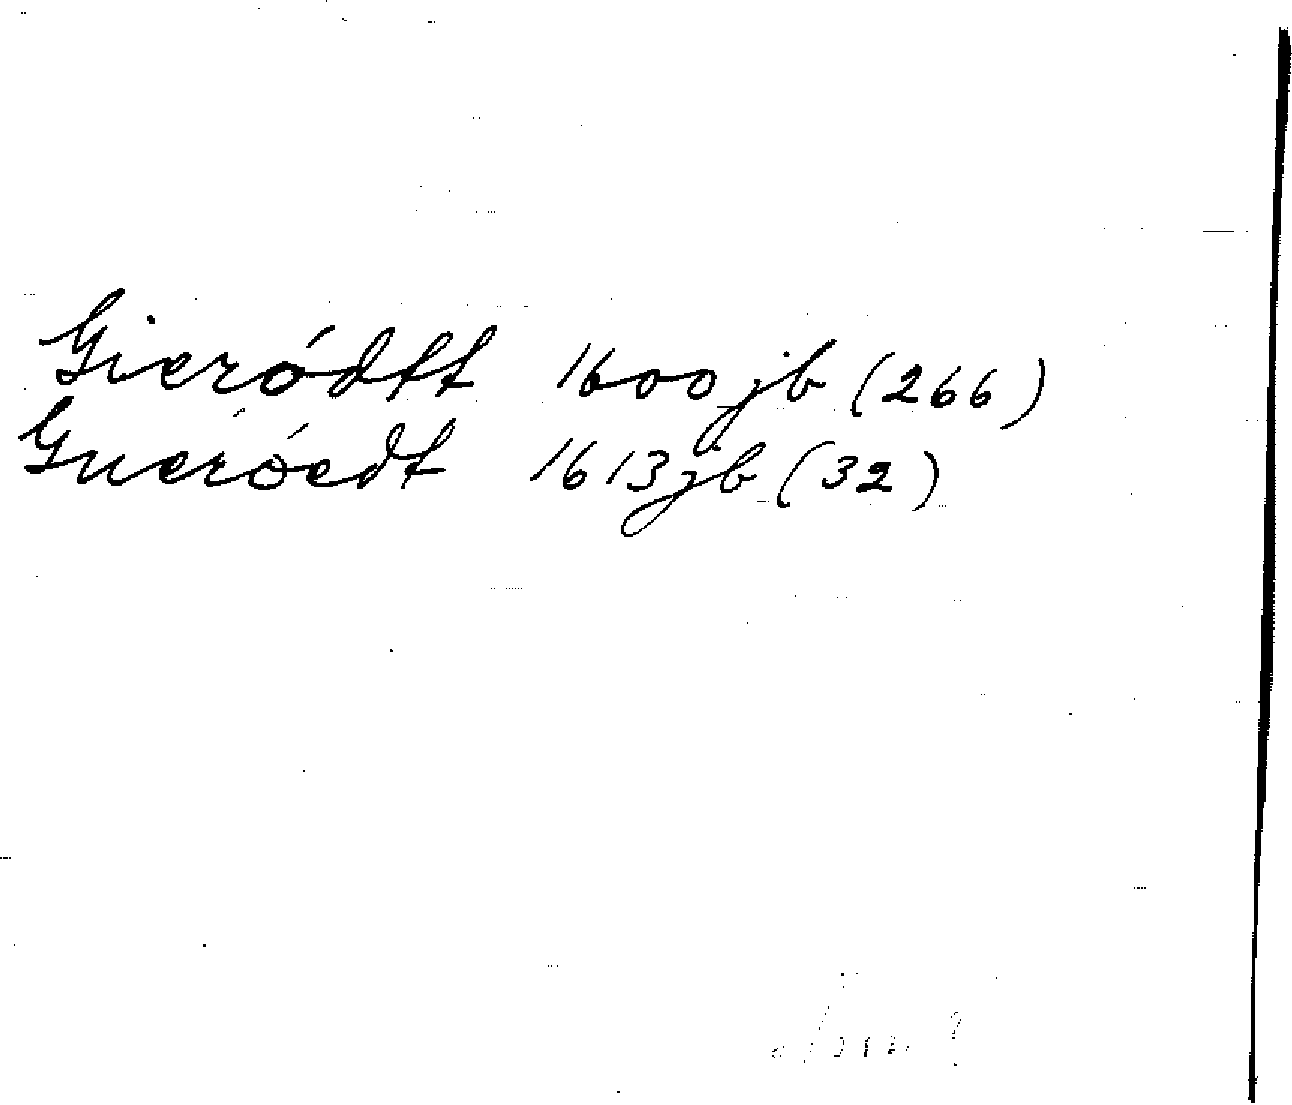 Gieródtt 1600 jb (266)
Gueróedt 1613 jb (32)